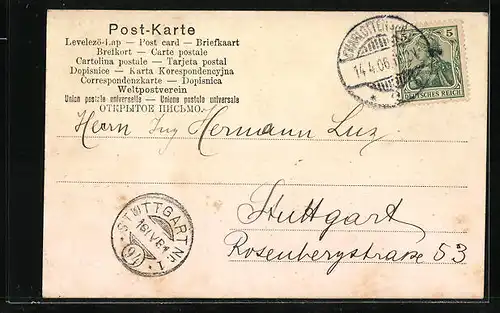 Post-Karte
Levelező-Lap — Post card — Briefkaart
Brefkort — Carte postale
Cartolina postale — Tarjeta postal
Dopisnice — Karta Korespondencyjna
Correspondenzkarte — Dopisnica
Weltpostverein
Union postale universelle — Unione postale universale
ОТКРЫТОЕ ПИСЬМО
14.4.06
5 5
DEUTSCHES REICH
Herrn Ing Hermann Luz
STUTTGART No 1
Stuttgart
Rosenbergstraße 53